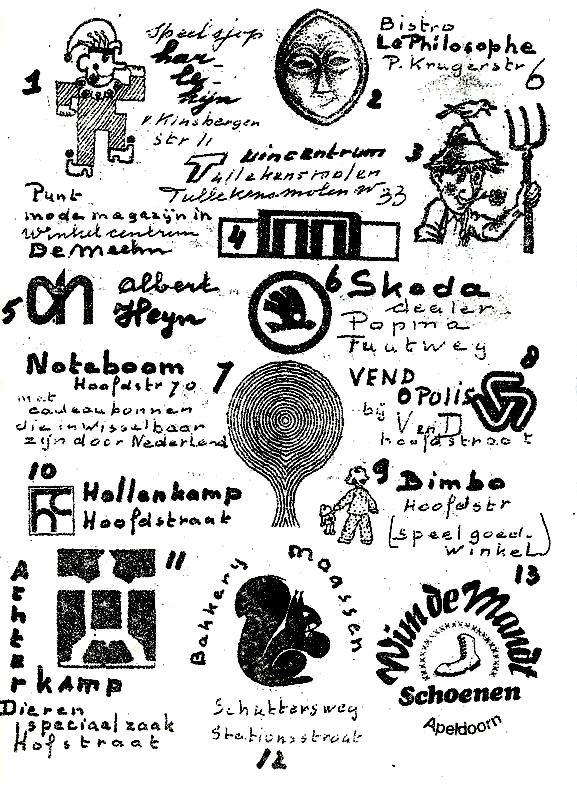 1
Speelsjop
har-
le-
kijn
v. Kinsbergen
str 11
2
Bistro
Le Philosophe
P. Krugerstr
6
3
Tuincentrum
Tullekensmolen
Tullekensmolenw 33
Punt
mode magazijn in
winkel centrum
De Meehn
4
5
ah
Albert
Heyn
6 Skoda
dealer
Popma
Fuutweg
Noteboom
Hoofdstr 70
met
cadeaubonnen
die inwisselbaar
zijn door Nederland
7
8
VEND
OPolis
bij
V en D
hoofdstraat
9 Bimbo
Hoofdstr
(speelgoed-
winkel)
10
Hollenkamp
Hoofdstraat
11
Achterkamp
Dieren
speciaalzaak
Hofstraat
Bakkery Maassen
Schuttersweg
Stationsstraat
12
13
Wim de Mandt
Schoenen
Apeldoorn